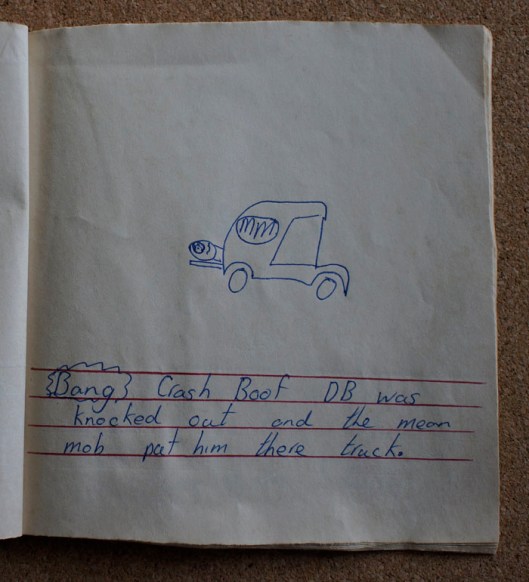 MM
Bang Crash Boof DB was
knocked out and the mean
mob put him there truck.